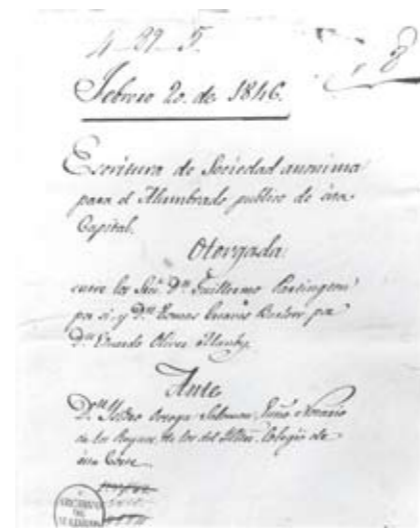 4-89-5
Febrero 20. de 1846.
Escritura de Sociedad anonima
para el Alumbrado publico de esta
Capital.
Otorgada
entre los Señ.s Dn Guillermo Partington
por si, y Dn Tomas por
Dn Eduardo Oliver Manby.
Ante
Dn Isidro Ortega Salomon, Notario
de los Reynos, de los del Colegio de
esta Corte
ARCHIVO
DE